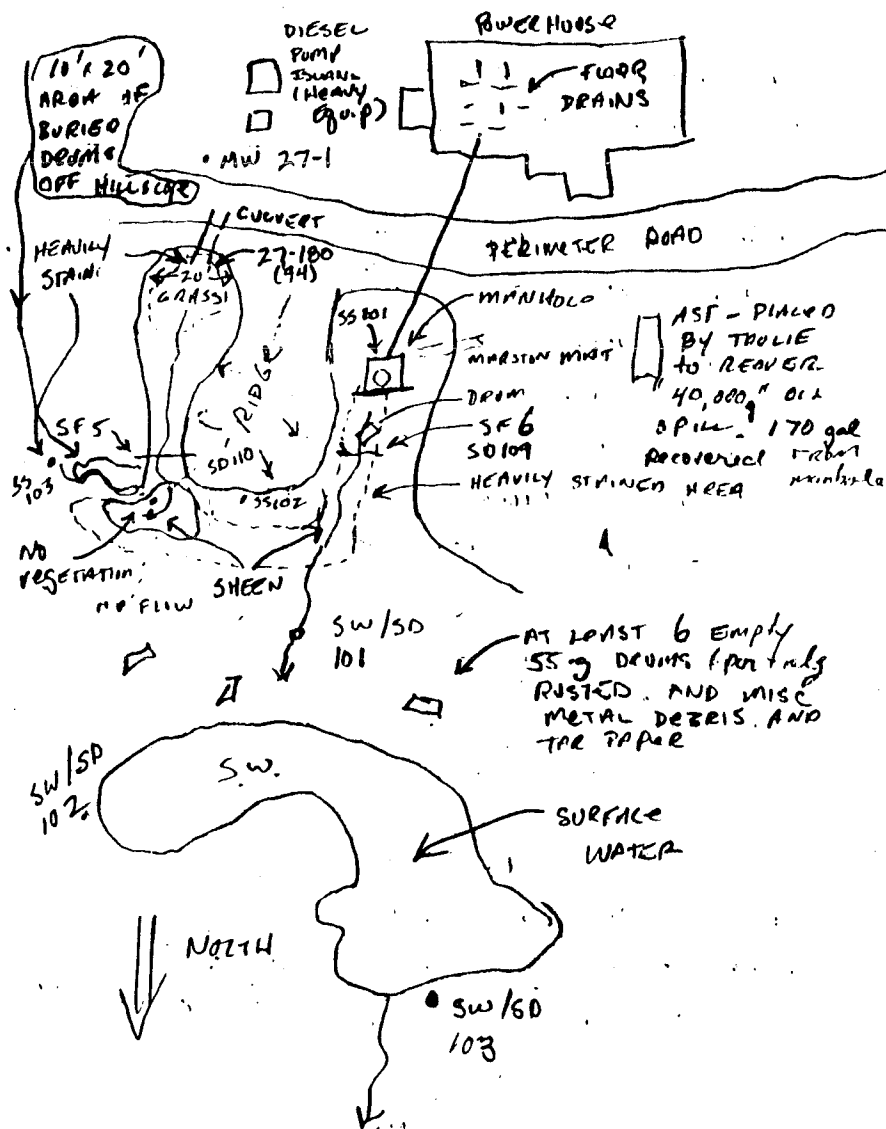 10' x 20'
AREA OF
BURIED
DRUMS
OFF HILLSLOPE
DIESEL
PUMP
ISLAND
(HEAVY
Equip)
POWERHOUSE
FLOOR
DRAINS
MW 27-1
CULVERT
PERIMETER ROAD
HEAVILY
STAIN
20'
GRASS
27-180
(94)
RIDGE
SS101
MANHOLE
MARSTON MATT
DRUM
SF6
SD109
HEAVILY STAINED AREA
AST - PLACED
BY
to
40,000g OIL
SPILL. 170 gal
Recovered FROM
manhole
SF5
SS
103
SD110
SS102
NO
vegetation
NO FLOW
SHEEN
SW/SD
101
AT LEAST 6 Empty
55g DRUMS (partially
RUSTED. AND MISC
METAL DEBRIS. AND
TAR PAPER
SW/SD
102
S.W.
SURFACE
WATER
NORTH
SW/SD
103